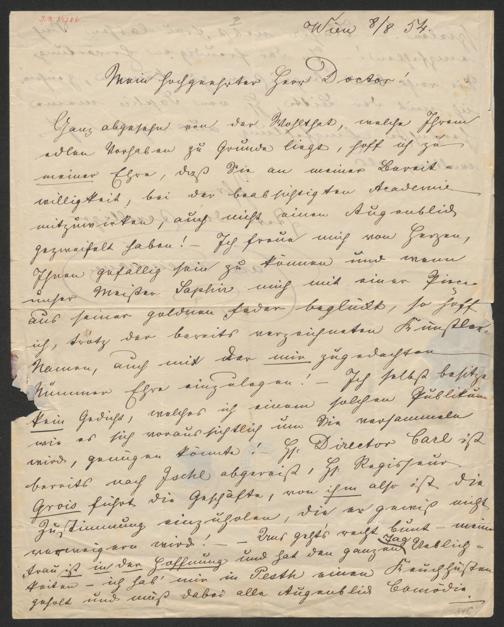 Wien 8/8 54.
Mein hochgeehrter Herr Doctor!
Ganz abgesehn von der Wohlthat, welche Ihrem
edlen Vorhaben zu Grunde liegt, hoff ich zu
meiner Ehre, daß Sie an meiner Bereit-
willigkeit, bei der beabsichtigten Academie
mitzuwirken, auch nicht einen Augenblick
gezweifelt haben! - Ich freue mich von Herzen,
Ihnen gefällig sein zu können und wenn
unser Meister Saphir mich mit einer Piece
aus seiner goldnen Feder beglückt, so hoff
ich, trotz der bereits verzeichneten Künstler-
Namen, auch mit der mir zugedachten
Nummer Ehre einzulegen! - Ich selbst besitze
kein Gedicht, welches ich einem solchen Publikum
wie es sich voraussichtlich um Sie versammeln
wird, genügen könnte! H. Director Carl ist
bereits nach Ischl abgereist, H. Regisseur
Grois führt die Geschäfte, von ihm also ist die
Zustimmung einzuholen, die er gewiß nicht
verweigern wird! - Uns geht's recht bunt - meine
Frau ist in der Hoffnung und hat den ganzen Tag Ueblich-
keiten - ich hab' mir in Pesth einen Keuchhusten
geholt und muß dabei alle Augenblick Comödie